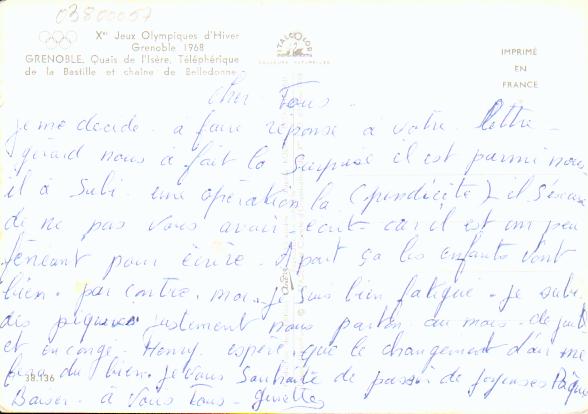 03800057
Xes Jeux Olympiques d'Hiver
Grenoble 1968
GRENOBLE, Quais de l'Isère, Téléphérique
de la Bastille et chaîne de Belledonne
ITALCOLOR
COULEURS NATURELLES
IMPRIMÉ
EN
FRANCE
Cher Tous
je me decide à faire réponse à votre lettre
gérard nous à fait la surprise il est parmi nous
il à subi une opération la (pendicite) il s'éxcuse
de ne pas vous avoir écrit car il est un peu
fénéant pour écrire. Apart ça les enfants vont
bien. par contre moi je suis bien fatigue. je subi
des piqures justement nous parton au mois de juil
et en congé. Henry espère que le changement d'air me
fera du bien. je vous Souhaite de passer de joyeuses Pâques
Baiser à Vous Tous - Ginette
38.136